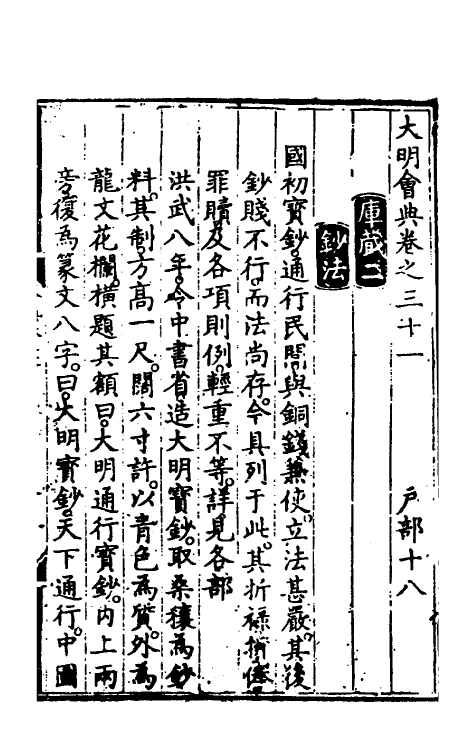 大明會典卷之三十一 戶部十八
庫藏二
鈔法
國初寶鈔。通行民間。與銅錢兼使。立法甚嚴。其後
鈔賤不行。而法尚存。今具列于此。其折祿折俸
罪贖及各項則例。輕重不等。詳見各部
洪武八年。令中書省造大明寶鈔。取桑穰為鈔
料。其制方高一尺。闊六寸許。以青色為質。外為
龍文花欄。橫題其額曰。大明通行寶鈔。內上兩
旁。復為篆文八字。曰。大明寶鈔。天下通行。中圖